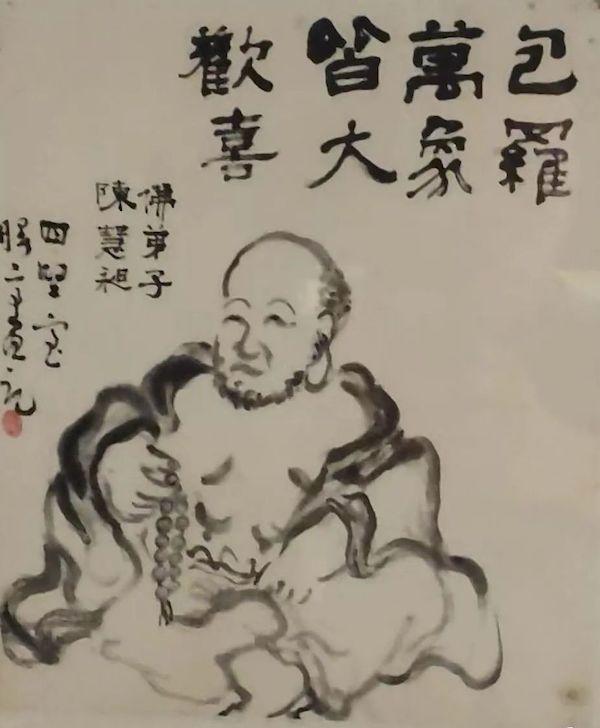 包羅
萬象
皆大
歡喜
佛弟子
陳慧昶
四堅室
勝二畫記